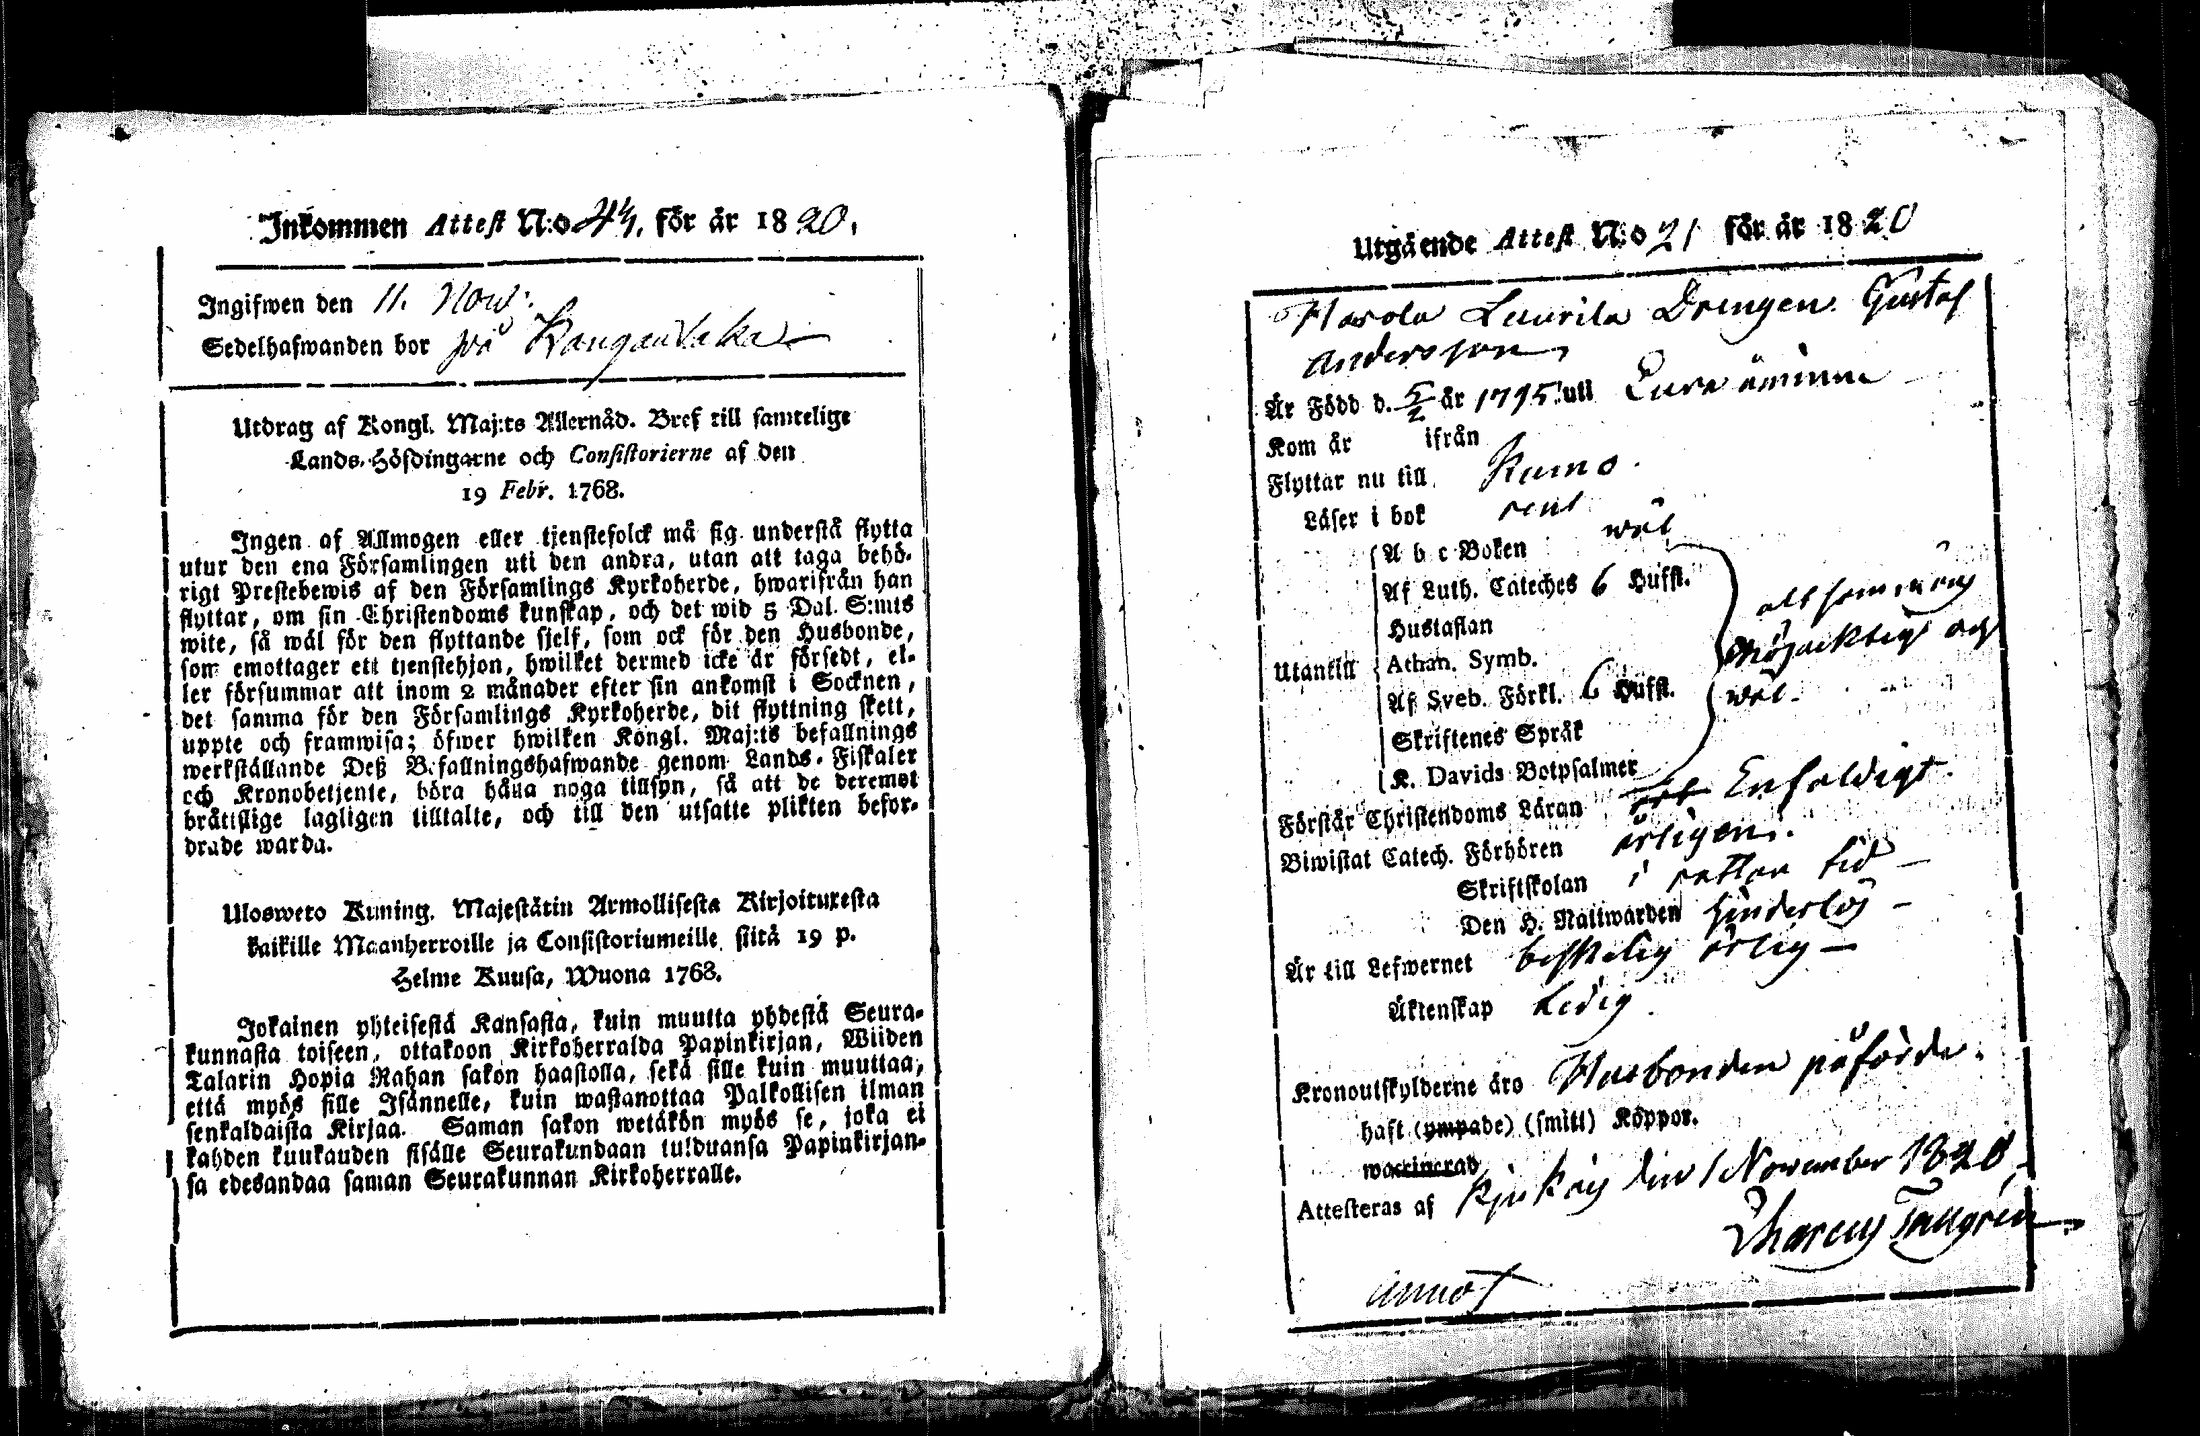 Inkommen Attest N:o 44, för år 1820.
Ingifwen den 11. Now:
Sedelhafwanden bor på
Utdrag af Kongl. Maj:ts Allernåd. Bref till samtelige
Lands-Höfdingarne och Consistorierne af den
19 Febr. 1768.
Ingen af Allmogen eller tjenstefolck må sig understå flytta
utur den ena Församlingen uti den andra, utan att taga behö-
rigt Prestebewis af den Församlings Kyrkoherde, hwarifrån han
flyttar, om sin Christendoms kunskap, och det wid 5 Dal. S:mts
wite, så wäl för den flyttande sjelf, som ock för den Husbonde,
som emottager ett tjenstehjon, hwilket dermed icke är försedt, el-
ler försummar att inom 2 månader efter sin ankomst i Socknen,
det samma för den Församlings Kyrkoherde, dit flyttning skett,
uppte och framwisa; öfwer hwilken Kongl. Maj:ts befallnings
werkställande Deß Befallningshafwande genom Lands-Fiskaler
och Kronobetjente, böra hålla noga tillsyn, så att de deremot
bråttslige lagligen tilltalte, och till den utsatte plikten befor-
drade warda.
Ulosweto Kuning. Majestätin Armollisesta Kirjoituxesta
kaikille Maanherroille ja Consistoriumeille, siitä 19 p.
Helme Kuusa, Wuona 1768.
Jokainen yhteisestä Kansasta, kuin muutta yhdestä Seura-
kunnasta toiseen, ottakoon Kirkoherralda Papinkirjan, Wiiden
Talarin Hopia Rahan sakon haastolla, sekä sille kuin muuttaa,
että myös sille Isännelle, kuin wastanottaa Palkollisen ilman
senkaldaista Kirjaa. Saman sakon wetäkön myös se, joka ei
kahden kuukauden sisälle Seurakundaan tulduansa Papinkirjan-
sa edesandaa saman Seurakunnan Kirkoherralle.
Utgående Attest N:o 21 för år 1820
Laurila Drengen Gustaf
Andersson,
Är Född d. 5/2 år 1795 uti Eura åminne
Kom år ifrån
Flyttar nu till Kumo.
Läser i bok rent
A b c Boken wäl
Af Luth. Cateches 6 Hufst.
Hustaflan
Utantill Athan. Symb.
Af Sveb. Förkl. 6 Hufst.
Skriftenes Språk
K. Davids Botpsalmer
alt som
och
wäl.
Förstår Christendoms Läran Enfaldigt.
Biwistat Catech. Förhören årligen.
Skriftskolan i rättan tid
Den H. Nattwarden hinderlös
Är till Lefwernet beskelig ärlig
Äktenskap Ledig.
Kronoutskylderne äro Husbonden påförde.
haft (ympade) (smitt) Koppor.
waccinerad
Attesteras af den 1 November 1820,
Marcus Tallgren